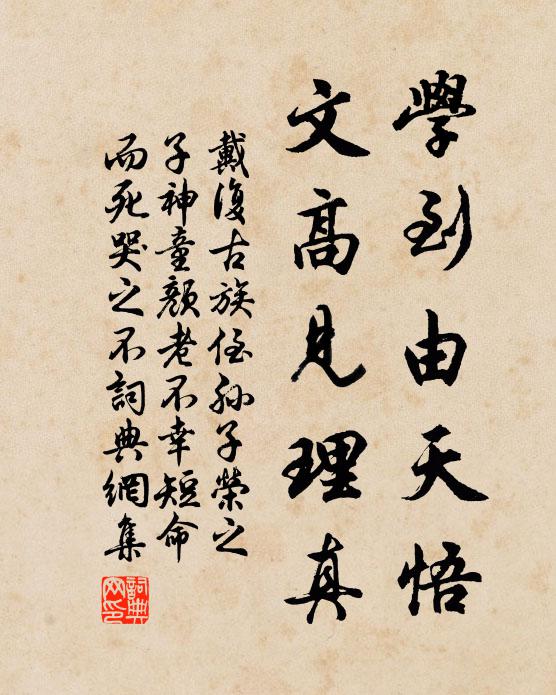 學到由天悟
文高見理真
戴復古族侄孫子榮之
子神童顏老不幸短命
而死哭之不詞典網集
詞典
网印